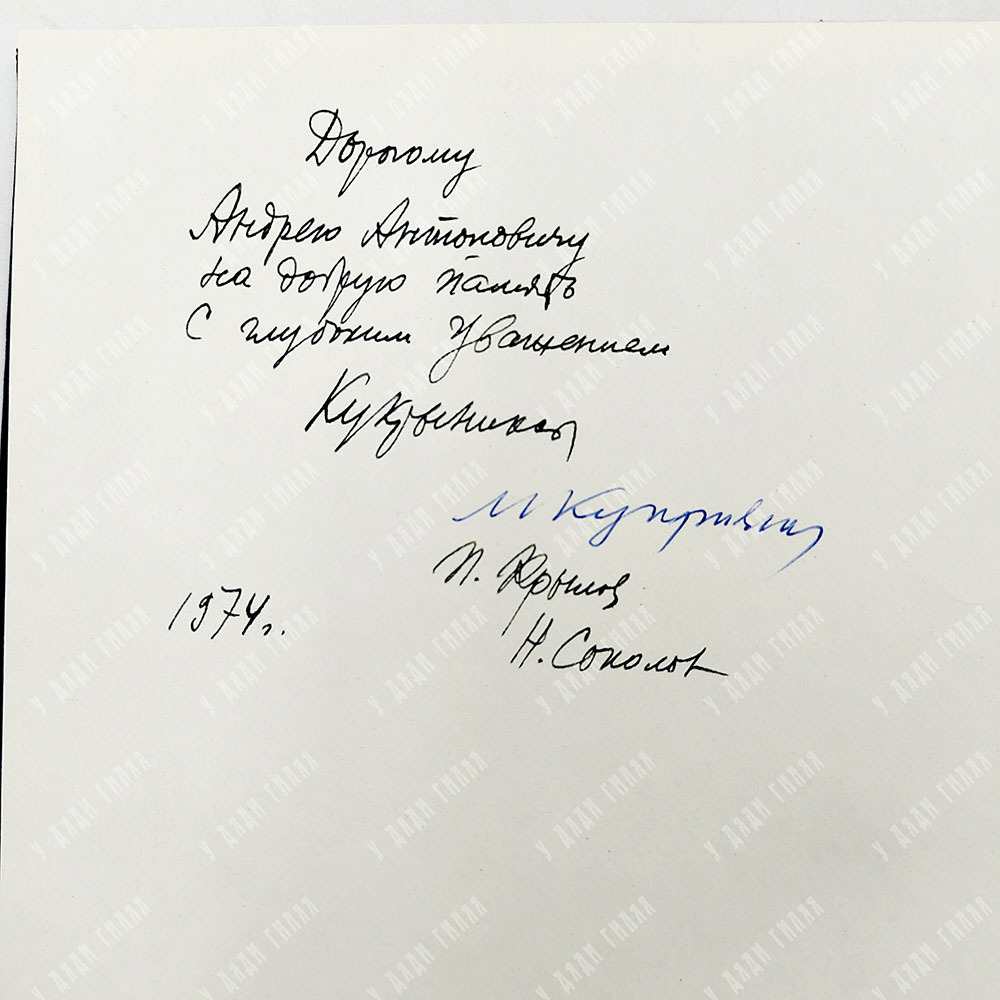 Дорогому
Андрею Антоновичу
на добрую память
С глубоким Уважением
Кукрыниксы
М Куприянов
П. Крылов
1974г.
Н. Соколов
У ДЯДИ ГИЛЯЯ